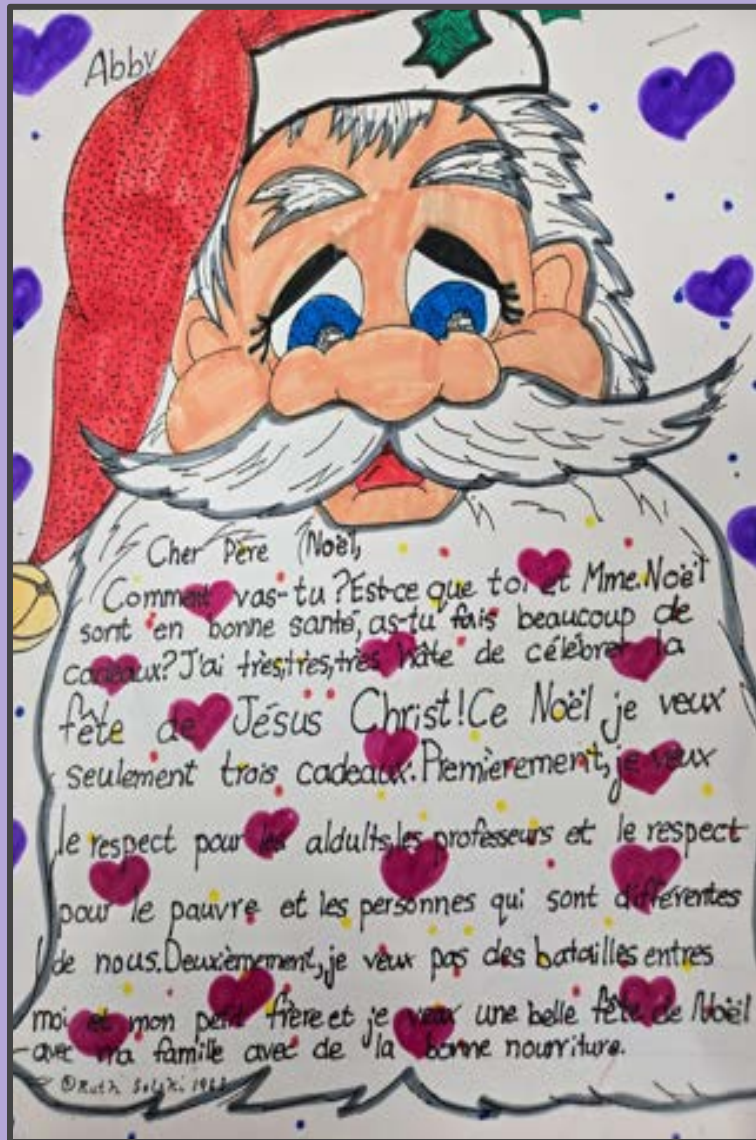 Abby
Cher Père Noël,
Comment vas-tu? Est-ce que toi et Mme. Noël
sont en bonne santé, as-tu fais beaucoup de
cadeaux? J'ai très, tres, très hâte de célébrer la
fête de Jésus Christ! Ce Noël je veux
seulement trois cadeaux. Premièrement, je veux
le respect pour les aldults, les professeurs et le respect
pour le pauvre et les personnes qui sont différentes
de nous. Deuxièmement, je veux pas des batailles entres
moi et mon petit frère et je veux une belle fête de Noël
avec ma famille avec de la bonne nourriture.
©Ruth Solski 1988